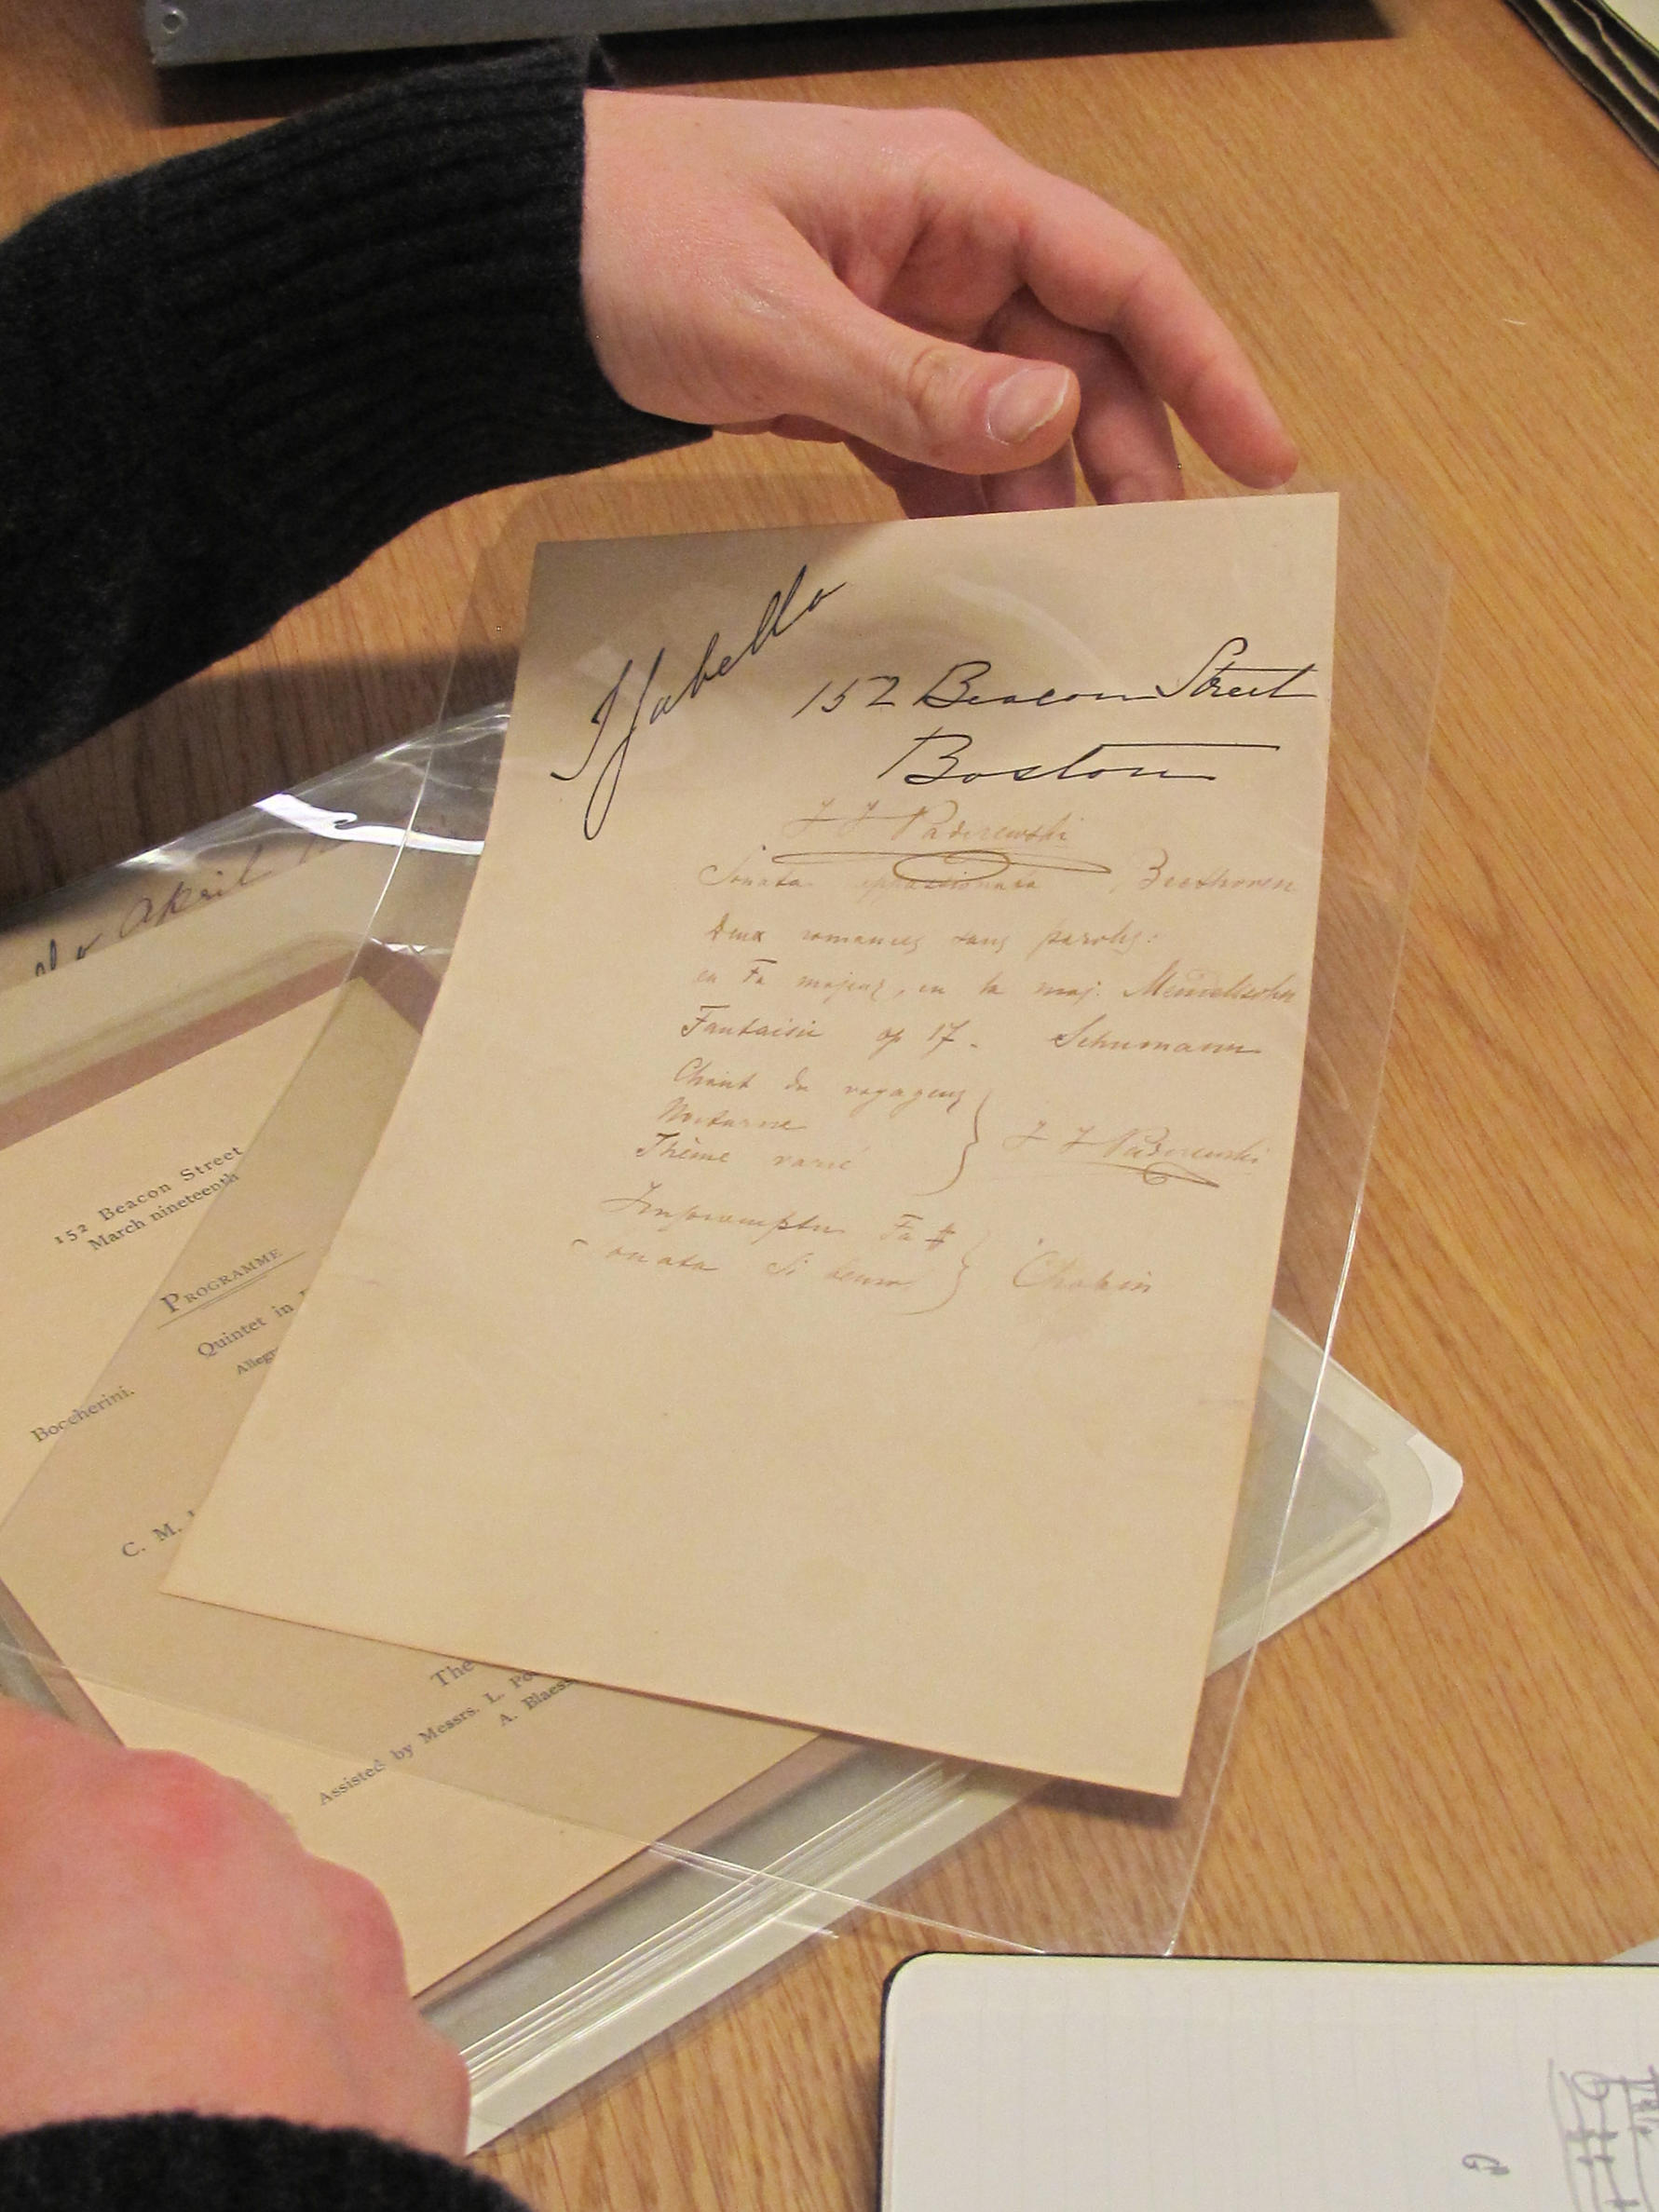 Isabella
152 Beacon Street
Boston
I J Paderewski
Sonata appassionata, Beethoven
Deux romances sans paroles:
en Fa majeur, en la maj. Mendelssohn
Fantaisie op 17. Schumann
Chant du voyageur
Nocturne
Thème varié
I J Paderewski
Impromptu Fa #
Sonata Si bemol
Chopin
April
152 Beacon Street
March nineteenth
PROGRAMME
Quintet in
Boccherini.
C. M.
The
Assisted by Messrs. L.
A.